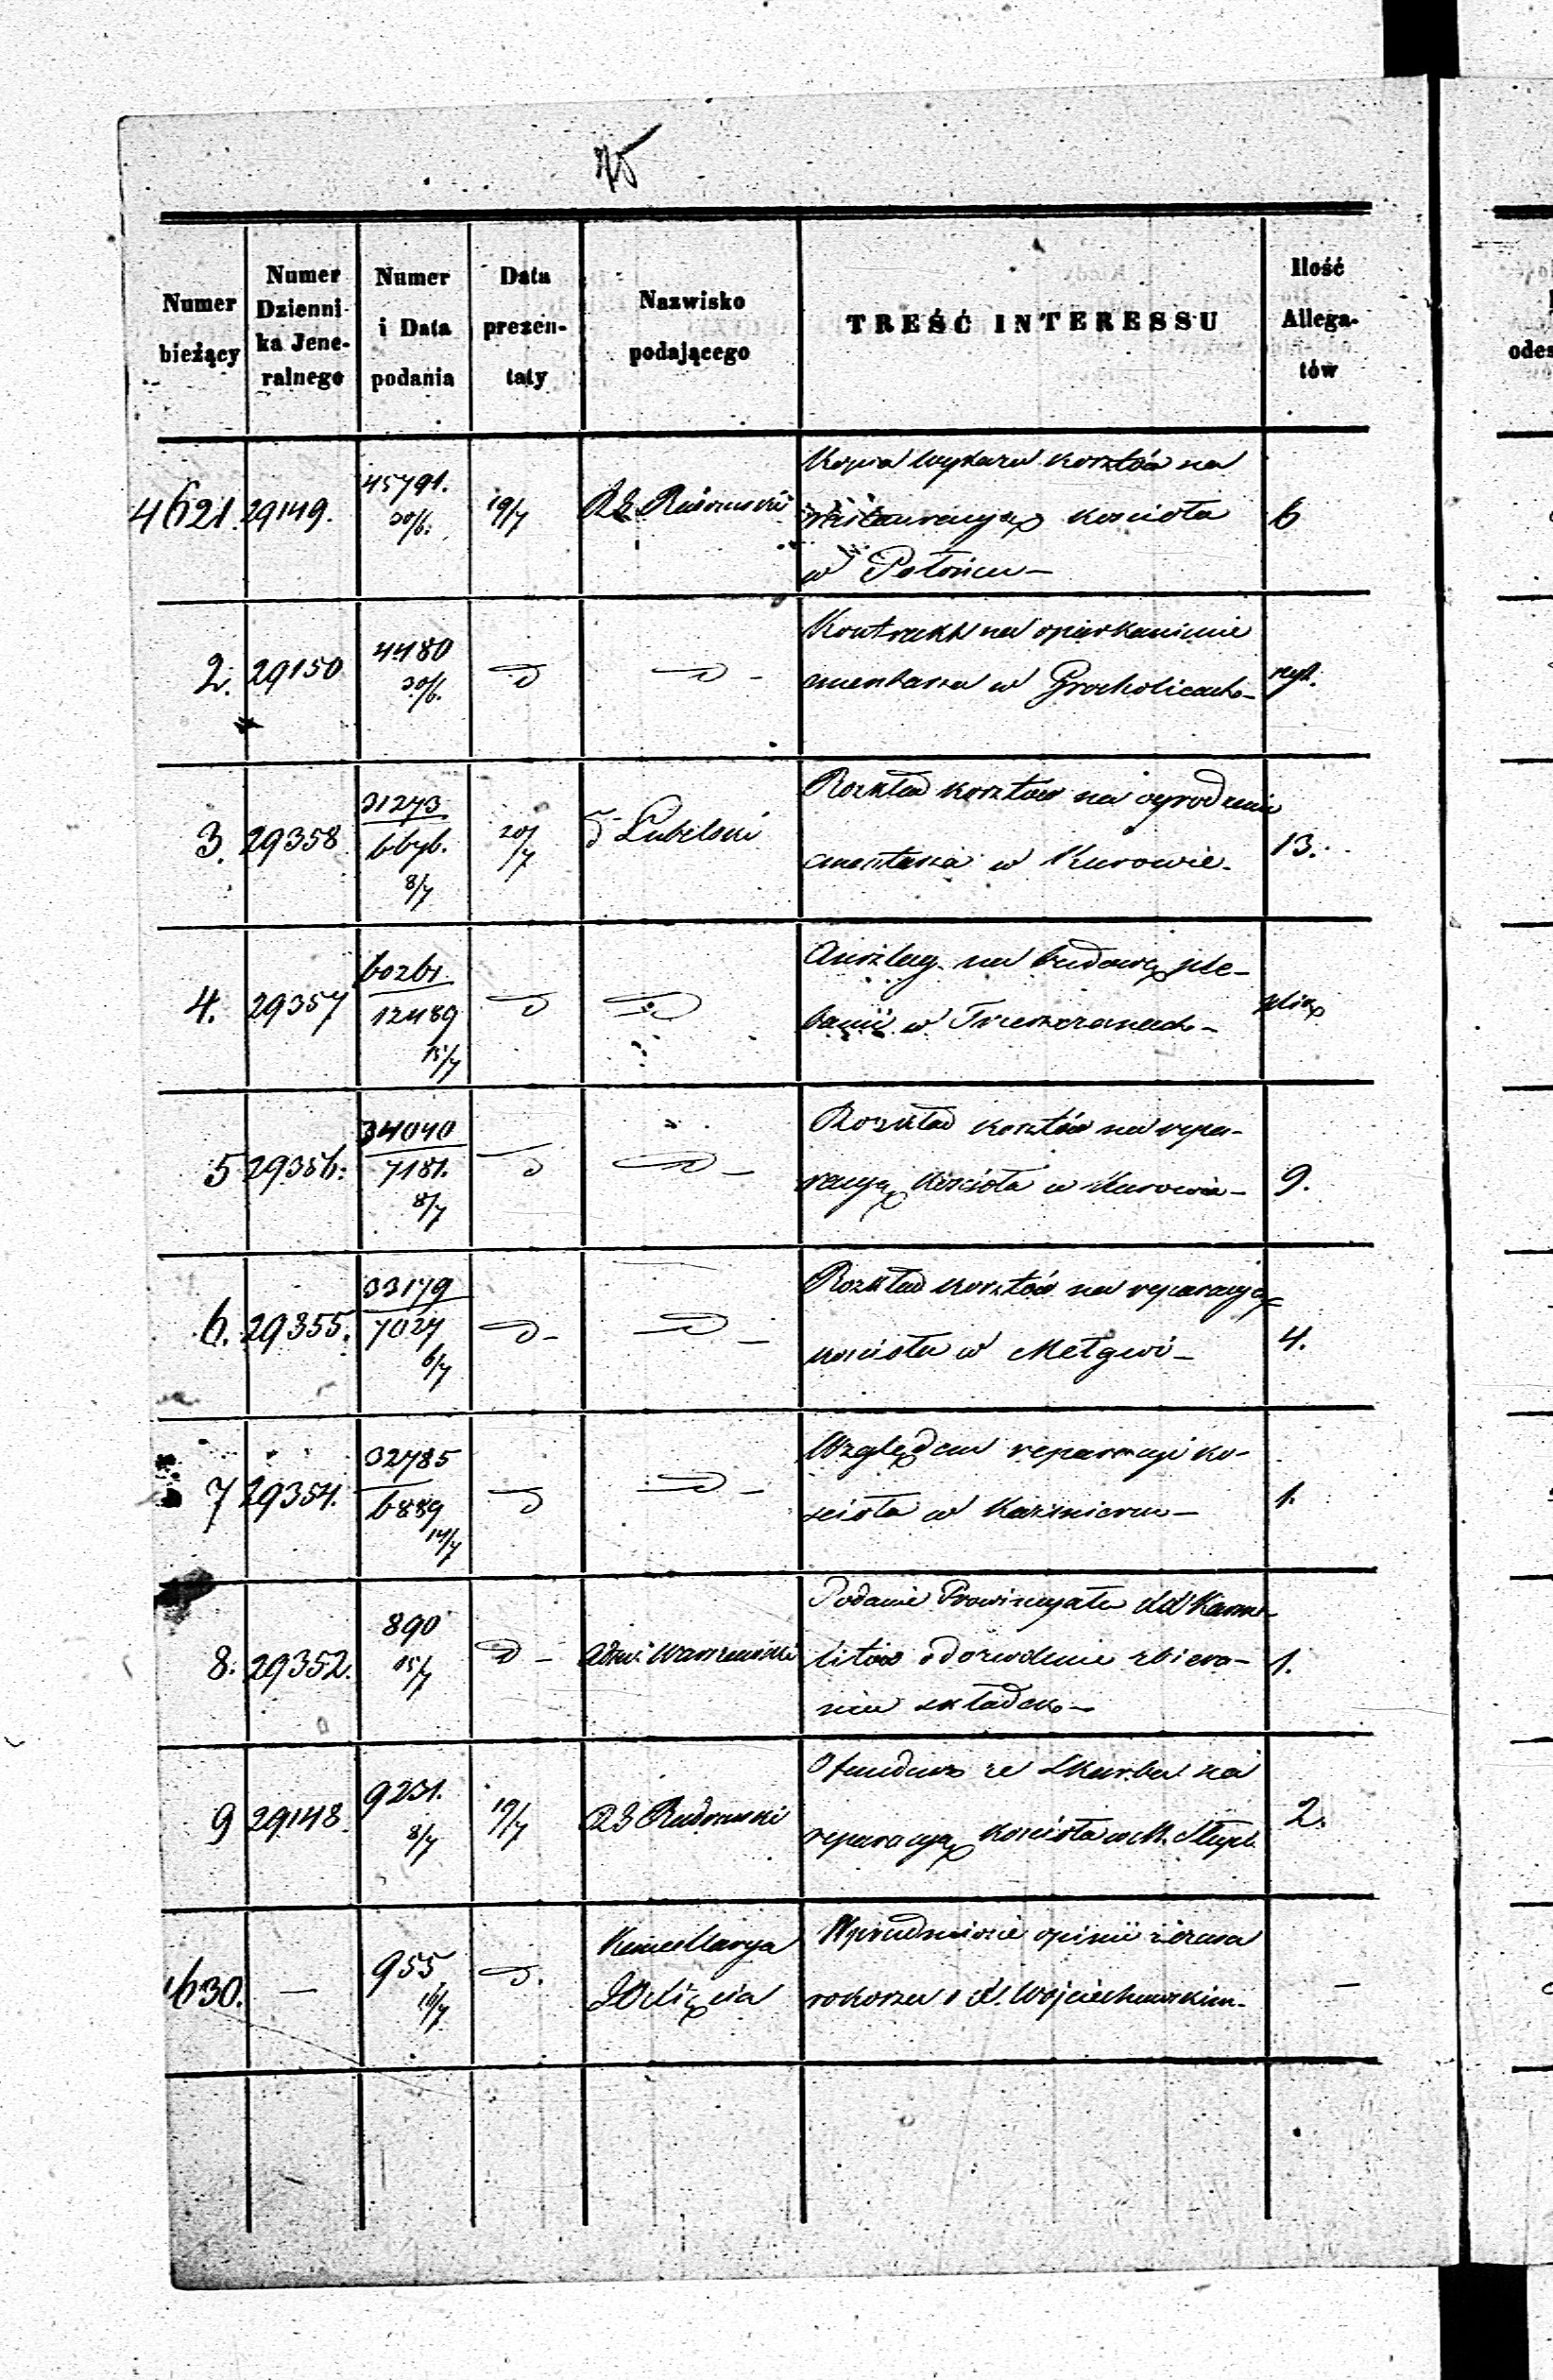 75
Numer bieżący
Numer Dzienni- ka Jene- ralnego
Numer i Data podania
Data prezen- taty
Nazwisko podającego
TREŚĆ INTERESSU
Ilość Allega- tów
4621. 29149. 45791. 30/6. 19/7 Kopia wykazu kosztów na
restauracyą kościoła 6
w Połońcu –
2. 29150 4480 30/6. Kontrakt na oparkanienie
cmentarza w Grocholicach –
3. 29358 31273 6676. 8/7 20/7 Lubelski Rozkład kosztów na ogrodzenie
cmentarza w Kurowie. 13.
4. 29357 60261 12489 15/7 Anszlag na budowę ple-
banii w Trzeszczanach –
5 29356. 34040 7181. 8/7 Rozkład kosztów na repa-
racyą kościoła w Kurowie – 9.
6. 29355. 33179 7027 6/7 Rozkład kosztów na reparacyą
kościoła w Mełgwi – 4.
7 29354. 32785 6889 14/7 Względem reparacyi ko-
ścioła w Kazimierzu – 1.
8. 29352. 890 15/7 Podanie Prowincyała Karme-
litów o dozwolenie zbiera- 1.
nia składek –
9 29148. 9231. 8/7 19/7 Radomski O fundusz ze Skarbu na
reparacyą kościoła w M. Słupi 2.
4630. — 955 16/7 Kancellarya W przedmiocie opinii
J O Xięcia Wojciechowskim. —